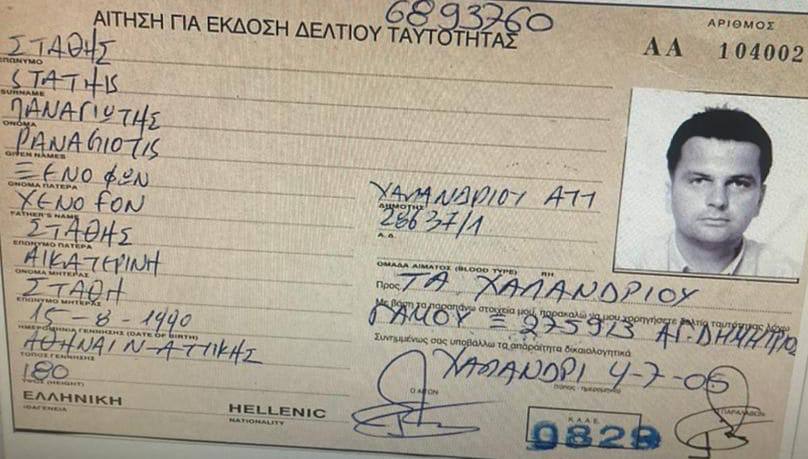 6893760
ΑΙΤΗΣΗ ΓΙΑ ΕΚΔΟΣΗ ΔΕΛΤΙΟΥ ΤΑΥΤΟΤΗΤΑΣ
ΑΡΙΘΜΟΣ
ΑΑ 104002
ΣΤΑΘΗΣ
ΕΠΩΝΥΜΟ
STATHIS
SURNAME
ΠΑΝΑΓΙΩΤΗΣ
ΟΝΟΜΑ
PANAGIOTIS
GIVEN NAMES
ΞΕΝΟΦΩΝ
ΟΝΟΜΑ ΠΑΤΕΡΑ
XENOFON
FATHER'S NAME
ΣΤΑΘΗΣ
ΕΠΩΝΥΜΟ ΠΑΤΕΡΑ
ΑΙΚΑΤΕΡΙΝΗ
ΟΝΟΜΑ ΜΗΤΕΡΑΣ
ΣΤΑΘΗ
ΕΠΩΝΥΜΟ ΜΗΤΕΡΑΣ
15-8-1990
ΗΜΕΡΟΜΗΝΙΑ ΓΕΝΝΗΣΗΣ (DATE OF BIRTH)
ΑΘΗΝΑΙ Ν-ΑΤΤΙΚΗΣ
ΤΟΠΟΣ ΓΕΝΝΗΣΗΣ
180
ΥΨΟΣ (HEIGHT)
ΕΛΛΗΝΙΚΗ
ΙΘΑΓΕΝΕΙΑ
HELLENIC
NATIONALITY
ΧΑΛΑΝΔΡΙΟΥ ΑΤΤ
ΔΗΜΟΤΗΣ
28637/1
Α.Δ.
ΟΜΑΔΑ ΑΙΜΑΤΟΣ (BLOOD TYPE) RH.
Προς ΤΑ ΧΑΛΑΝΔΡΙΟΥ
Με βάση τα παραπάνω στοιχεία μου, παρακαλώ να μου χορηγήσετε δελτίο ταυτότητας λόγω
ΓΑΜΟΥ Ξ 275913 ΑΓ. ΔΗΜΗΤΡΙΟ
Συνημμένως σας υποβάλλω τα απαραίτητα δικαιολογητικά
ΧΑΛΑΝΔΡΙ 4-7-05
Τόπος - ημερομηνία
Ο ΑΙΤΩΝ
Κ.Α.Α.Ε.
0829
Ο ΠΑΡΑΛΑΒΩΝ